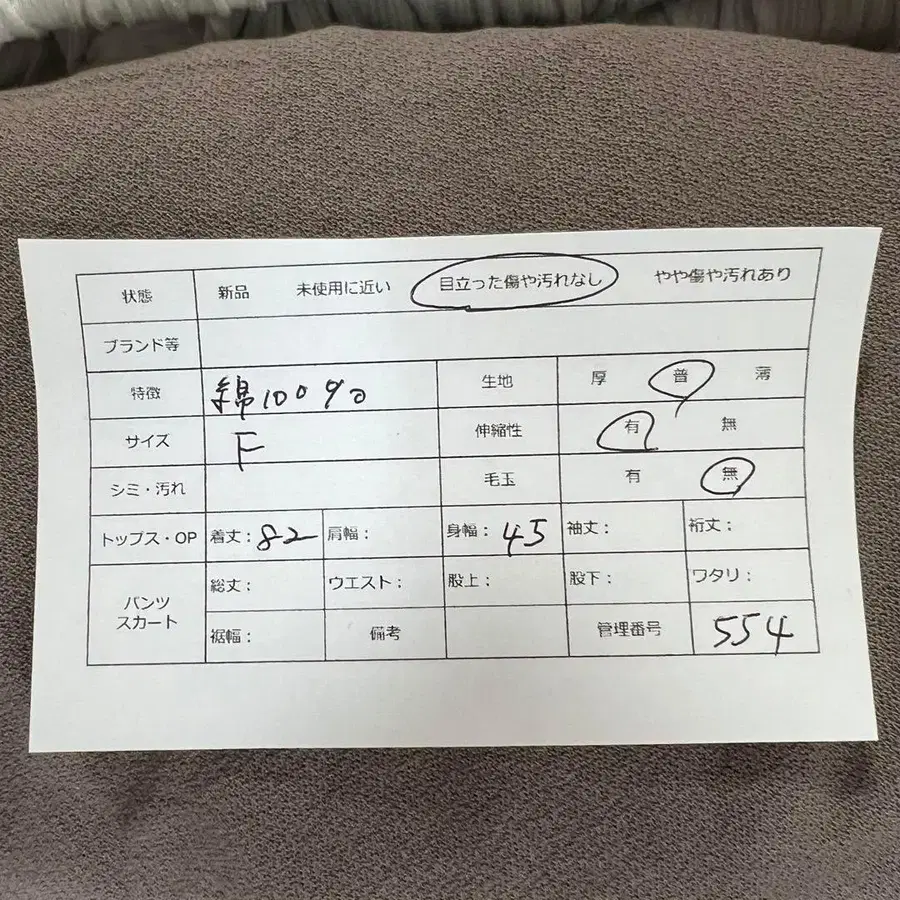 状態 新品 未使用に近い 目立った傷や汚れなし やや傷や汚れあり
ブランド等
特徴 綿100% 生地 厚 普 薄
サイズ F 伸縮性 有 無
シミ・汚れ 毛玉 有 無
トップス・OP 着丈：82 肩幅： 身幅：45 袖丈： 裄丈：
パンツ スカート 総丈： ウエスト： 股上： 股下： ワタリ：
裾幅： 備考 管理番号 554